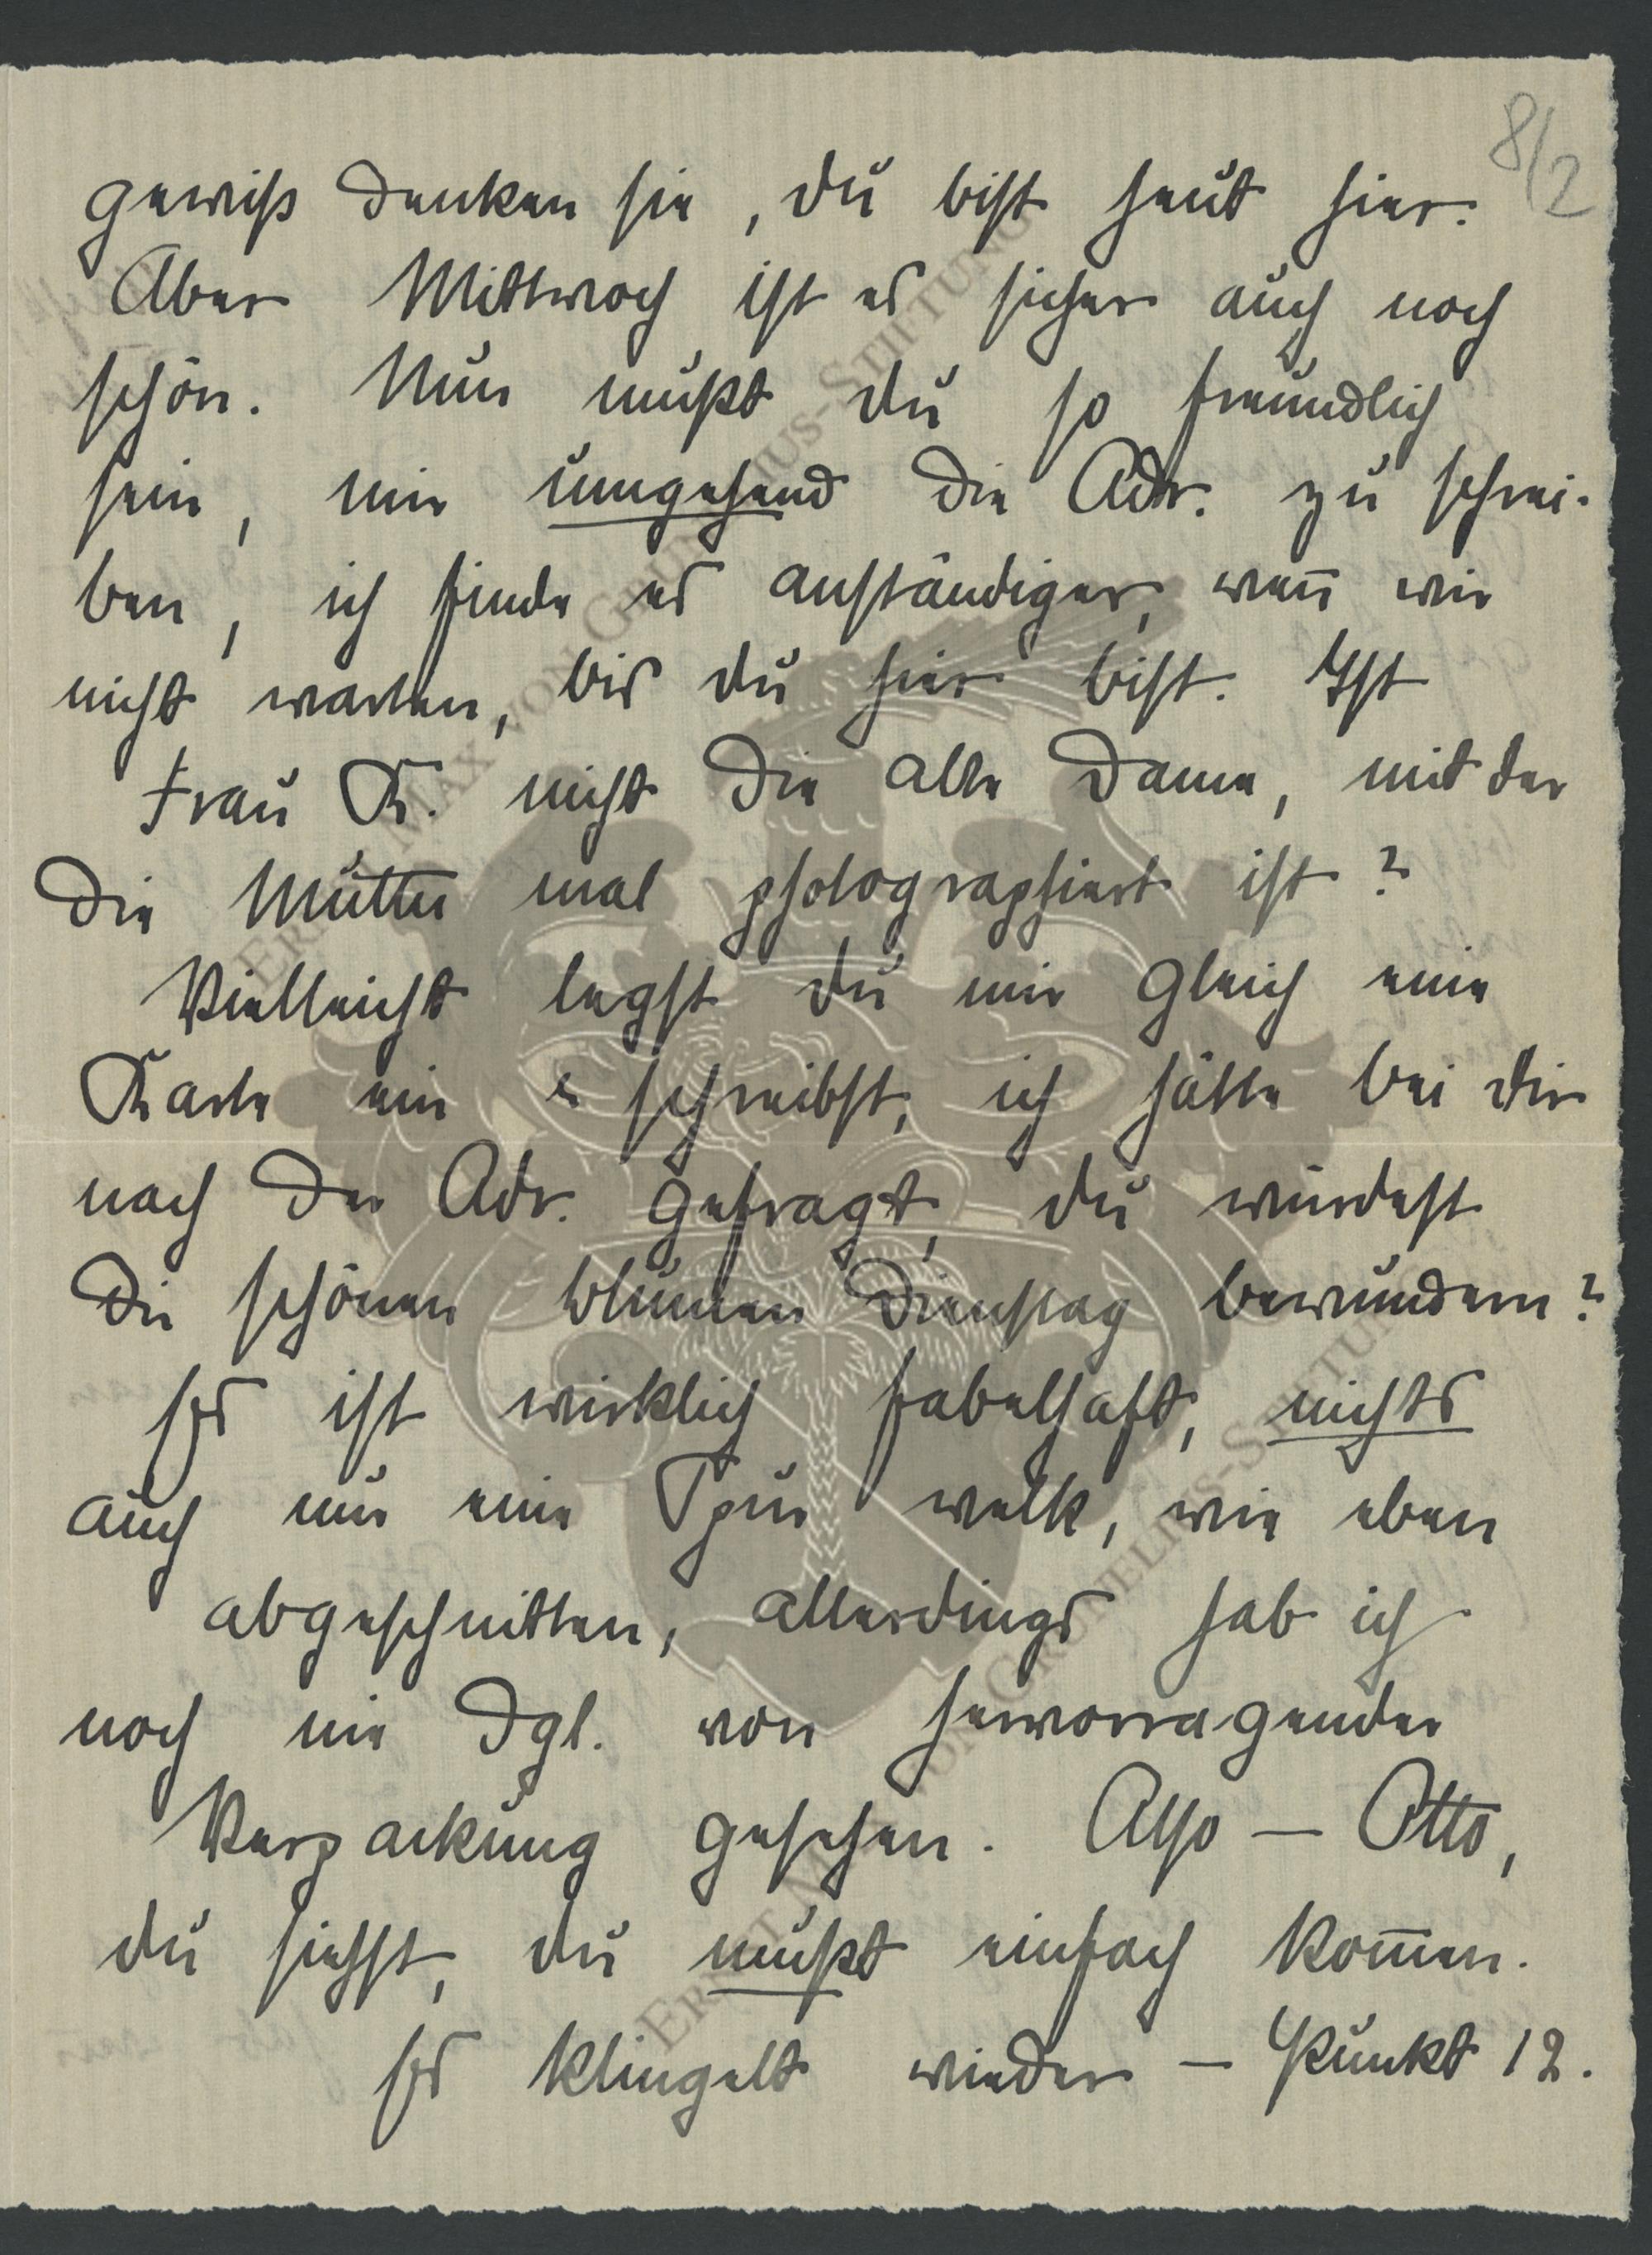 8/2
gewiß denken sie, du bist heut hier.
Aber Mittwoch ist es sicher auch noch
schön. Nun mußt du so freundlich
sein, mir umgehend die Adr. zu schrei-
ben, ich finde es anständiger, wen̅ wir
nicht warten, bis du hier bist. Ist
Frau K. nicht die alte Dame, mit der
die Mutter mal photographiert ist?
Vielleicht legst du mir gleich eine
Karte ein u schreibst, ich hätte bei dir
nach der Adr. gefragt, du würdest
die schönen Blumen Dienstag bewundern?
Es ist wirklich fabelhaft, nichts
auch nur eine Spur welk, wie eben
abgeschnitten, allerdings hab ich
noch nie dgl. von hervorragender
Verpackung gesehen. Also — Otto,
du siehst, du mußt einfach kom̅en.
Es klingelt wieder — Punkt 12.
ERNST MAX VON GRUNELIUS-STIFTUNG
ERNST MAX VON GRUNELIUS-STIFTUNG